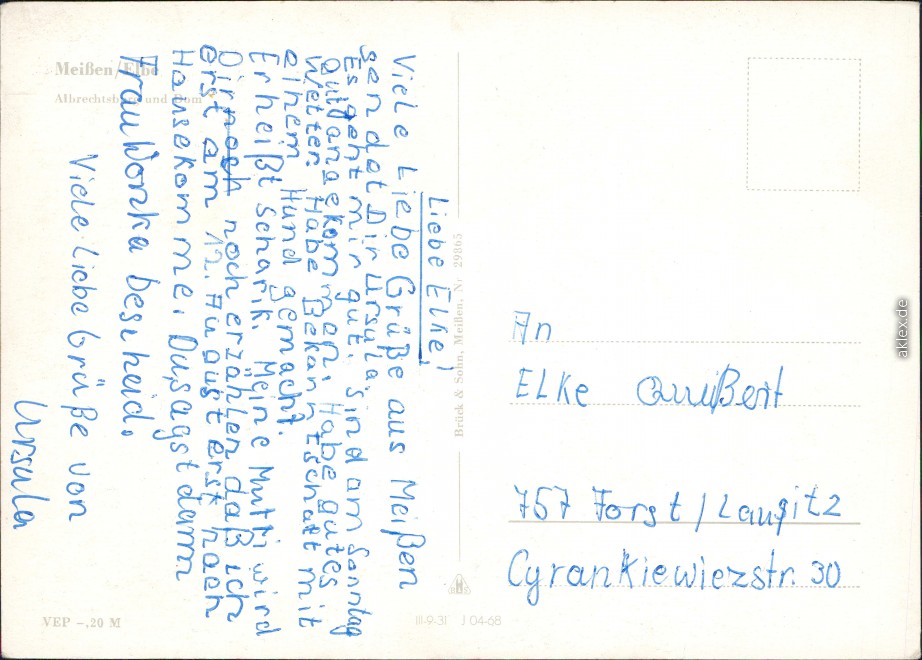 Meißen/Elbe
Albrechtsburg und Dom
Liebe Elke!
Viele Liebe Grüße aus Meißen
sendet Dir Ursula.
Es geht mir gut. Sind am Sonntag
gut angekommen. Habe gutes
Wetter. Habe Bekanntschaft mit
einem Hund gemacht.
Er heißt Scharik. Meine Mutti wird
Dir noch noch erzählen daß ich
erst am 12. August erst nach
Hausekomme. Du sagst dann
Frau Wonka bescheid.
Viele Liebe Grüße von
Ursula
VEP -,20 M
Brück & Sohn, Meißen, Nr 29865
III-9-31 J 04-68
An
ELKE
757 Forst / Lausitz
Cyrankiewiezstr. 30
aklex.de